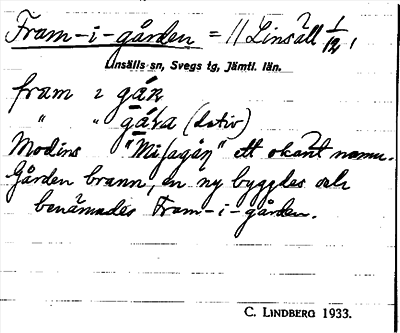 Fram-i-gården = 11 Linsäll 1/12,
Linsälls sn, Svegs tg, Jämtl. län.
fram i gåṙ
" " gåṙa (dativ)
Modins "Misagåṙ" ett okänt namn.
Gården brann, en ny byggdes och
benämndes Fram-i-gården.
C. LINDBERG 1933.